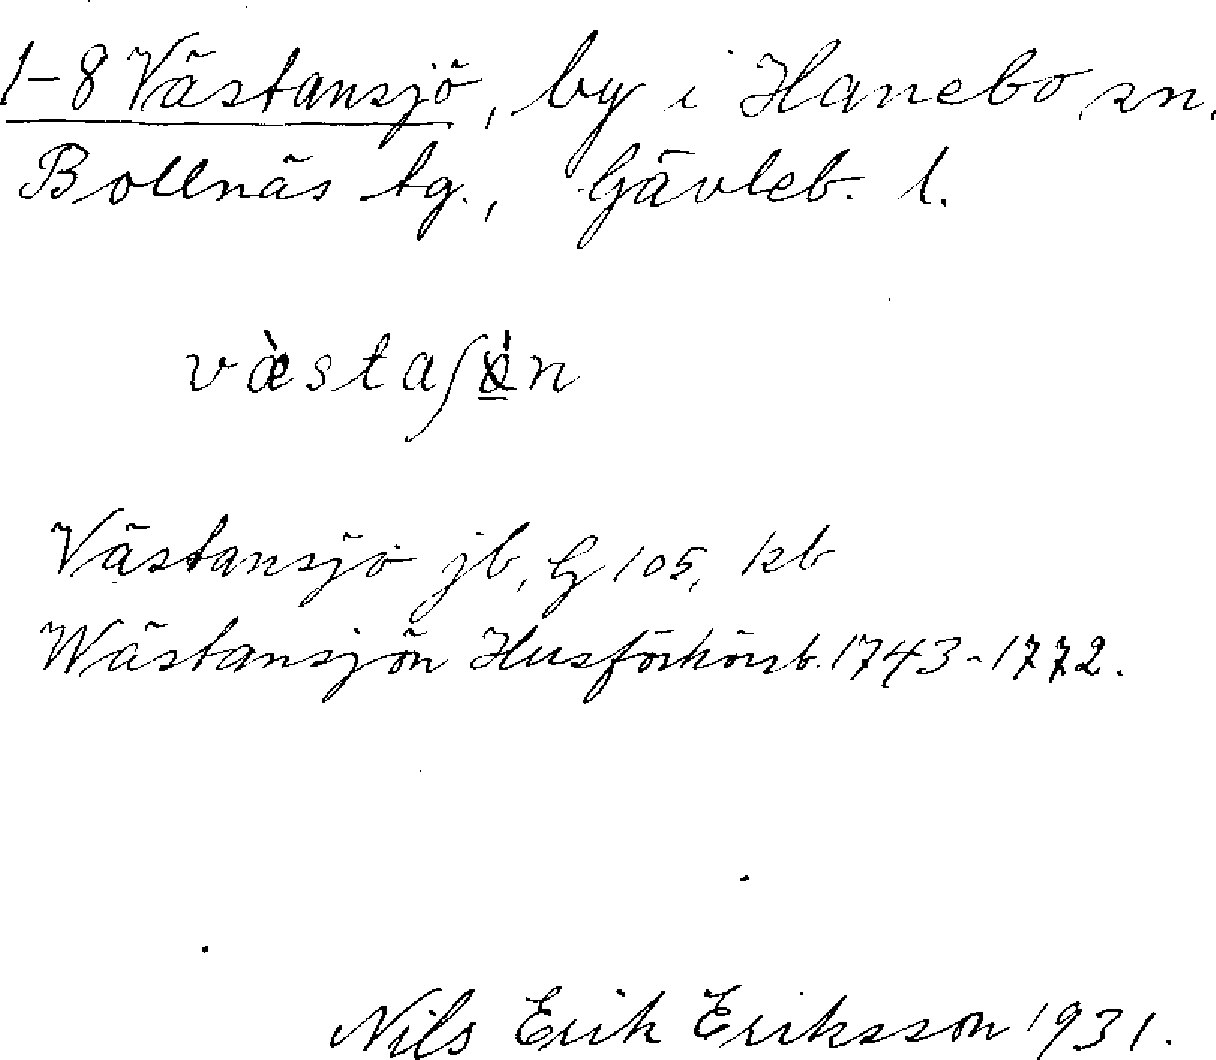 1-8 Västansjö, by i Hanebo sn.
Bollnäs tg., Gävleb. l.
Västansjö jb, G 105, kb
Wästansjön Husförhörsb. 1743-1772.
Nils Erik Eriksson 1931.